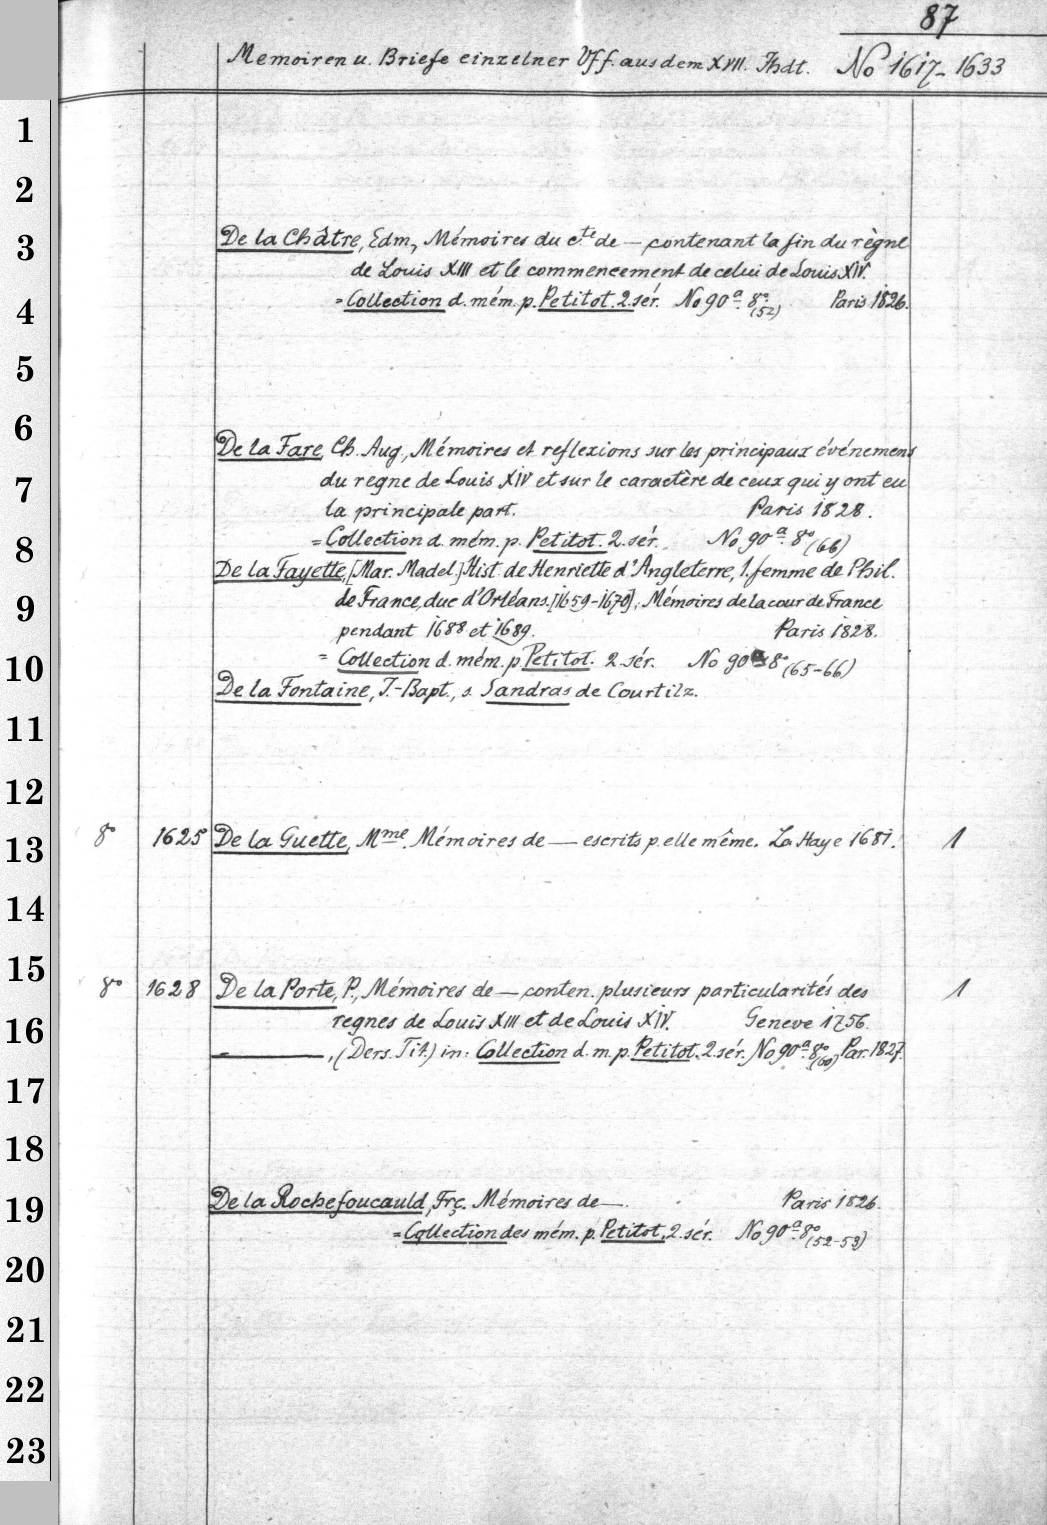 87
Memoiren u. Briefe einzelner Vff. aus dem XVII. Jhdt. No 1617-1633
1
2
3 De la Châtre, Edm., Mémoires du cte de — contenant la fin du règne
de Louis XIII et le commencement de celui de Louis XIV.
4 = Collection d. mém. p. Petitot. 2. sér. No 90a 8o (52) Paris 1826.
5
6 De la Fare, Ch. Aug., Mémoires et reflexions sur les principaux événemens
7 du regne de Louis XIV et sur le caractère de ceux qui y ont eu
la principale part. Paris 1828.
8 = Collection d. mém. p. Petitot. 2. sér. No 90a 8o (66)
De la Fayette, [Mar. Madel.] Hist. de Henriette d'Angleterre, 1. femme de Phil.
9 de France, duc d'Orléans. [1659-1670]; Mémoires de la cour de France
pendant 1688 et 1689. Paris 1828.
10 = Collection d. mém. p. Petitot. 2. sér. No 90a 8o (65-66)
De la Fontaine, J.-Bapt., s. Sandras de Courtilz.
11
12
13 8o 1625 De la Guette, Mme. Mémoires de — escrits p. elle même. La Haye 1681. 1
14
15 8o 1628 De la Porte, P., Mémoires de — conten. plusieurs particularités des 1
16 regnes de Louis XIII et de Louis XIV. Geneve 1756.
—, (Ders. Tit.) in: Collection d. m. p. Petitot. 2. sér. No 90a 8o (60) Par. 1827.
17
18
19 De la Rochefoucauld, Frç. Mémoires de —. Paris 1826.
= Collection des mém. p. Petitot, 2. sér. No 90a 8o (52-53)
20
21
22
23